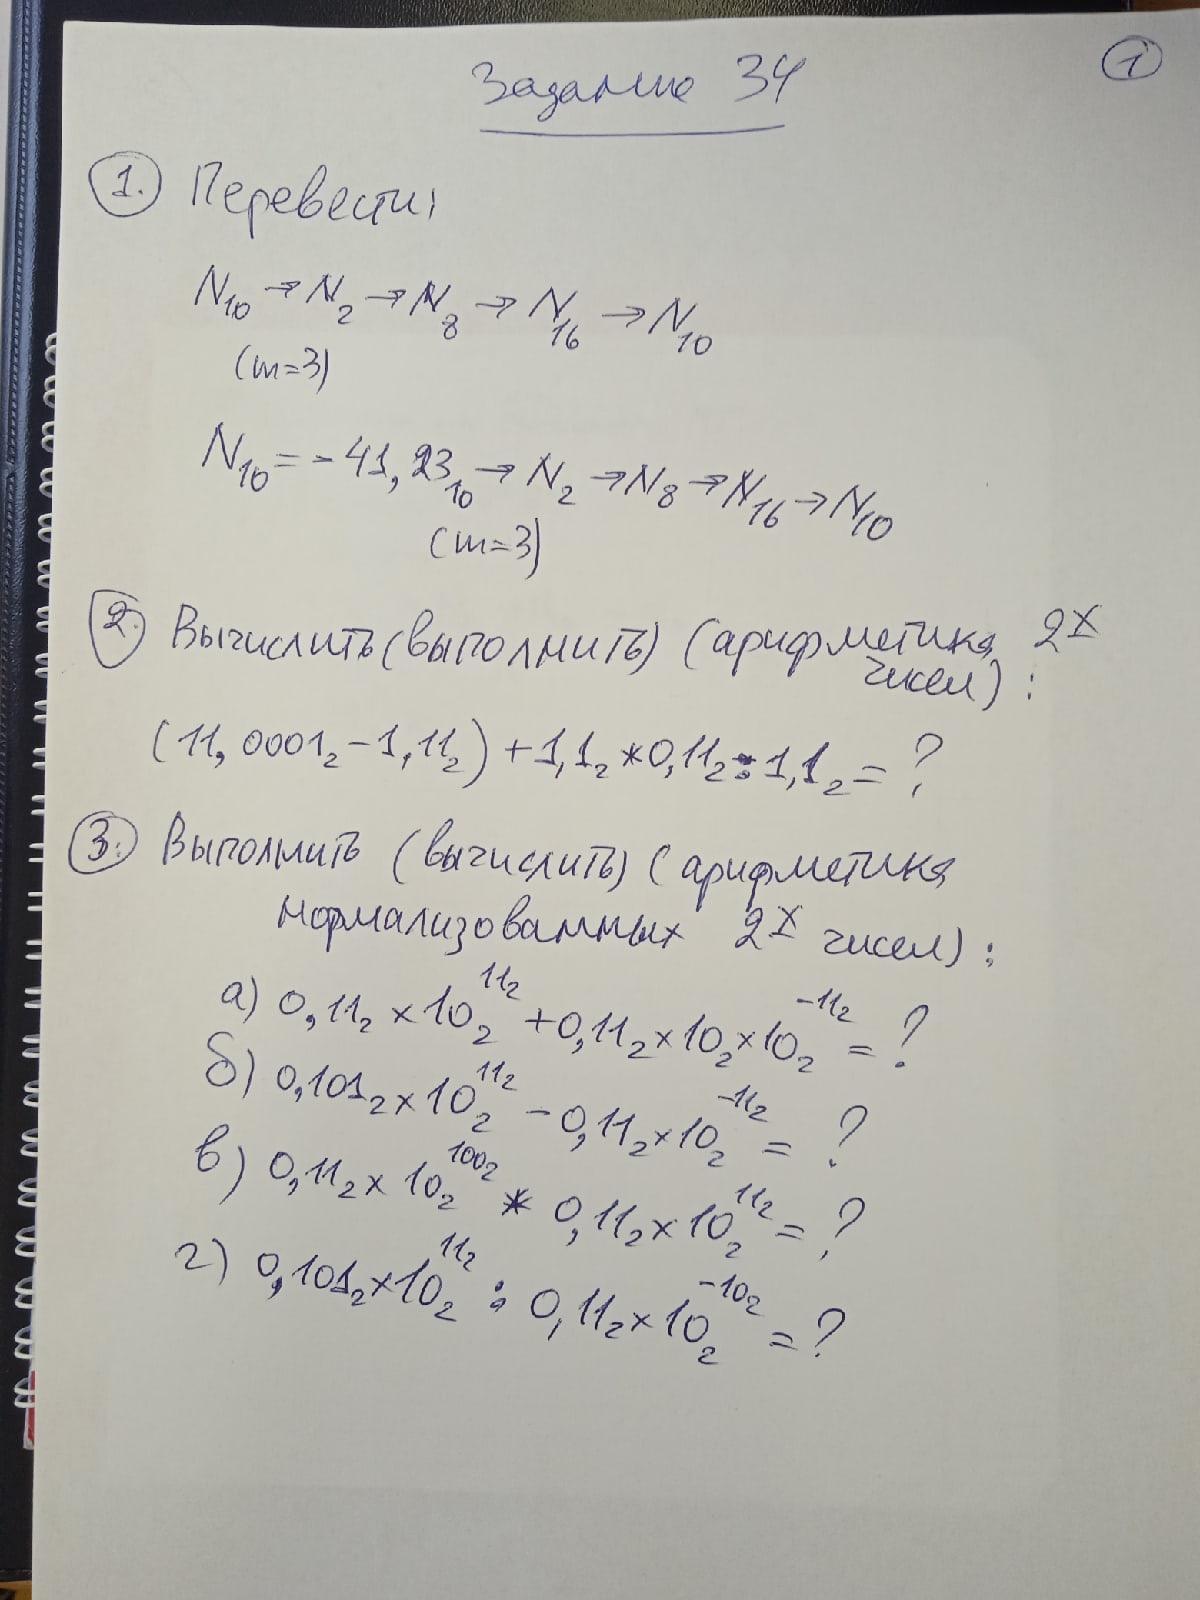 1
Задание 34
1. Перевести:
N₁₀ → N₂ → N₈ → N₁₆ → N₁₀
(m=3)
N₁₀ = -41,23₁₀ → N₂ → N₈ → N₁₆ → N₁₀
(m=3)
2. Вычислить (выполнить) (арифметика 2х
чисел):
(11,0001₂ - 1,11₂) + 1,1₂ * 0,11₂ : 1,1₂ = ?
3. Выполнить (вычислить) (арифметика
нормализованных 2х чисел):
а) 0,11₂ × 10₂^11₂ + 0,11₂ × 10₂ × 10₂^-11₂ = ?
б) 0,101₂ × 10₂^11₂ - 0,11₂ × 10₂^-11₂ = ?
в) 0,11₂ × 10₂^100₂ * 0,11₂ × 10₂^11₂ = ?
г) 0,101₂ × 10₂^11₂ : 0,11₂ × 10₂^-10₂ = ?